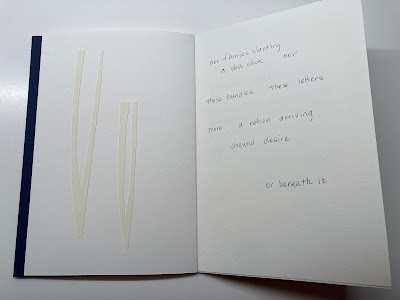 nor flurries slanting
a slow click nor
these bundles these letters
more a notion arriving
around desire
or beneath it